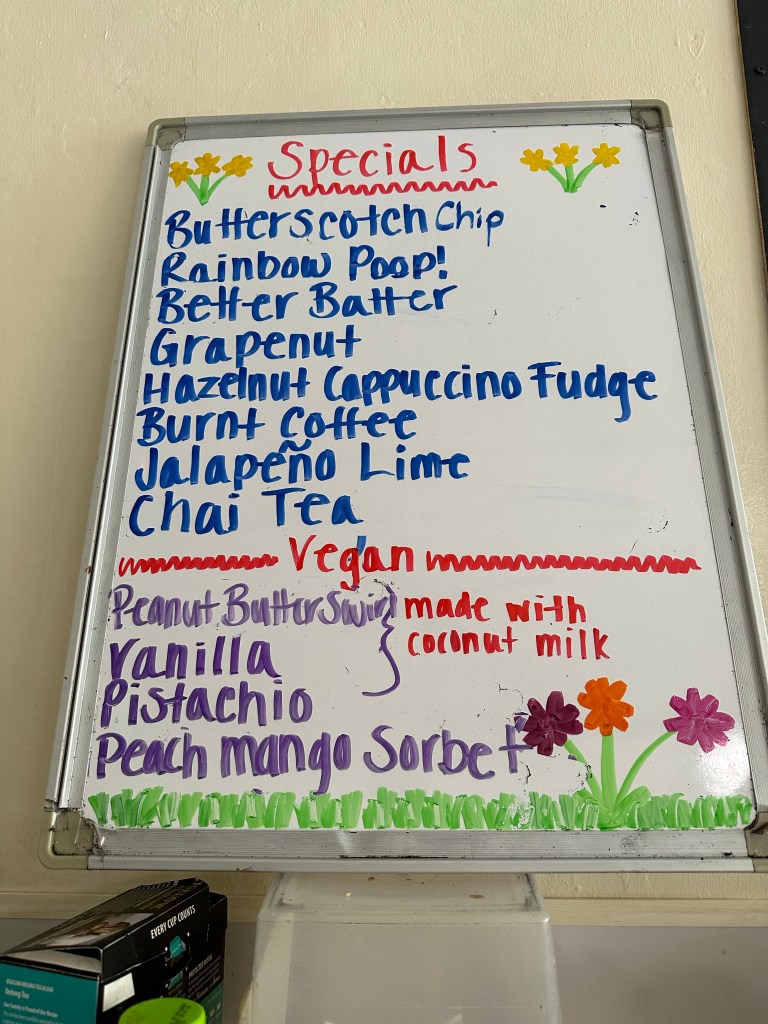 Specials
Butterscotch Chip
Rainbow Poop!
Better Batter
Grapenut
Hazelnut Cappuccino Fudge
Burnt Coffee
Jalapeño Lime
Chai Tea
Vegan
Peanut Butter Swirl
made with
coconut milk
Vanilla
Pistachio
Peach mango Sorbet
EVERY CUP COUNTS
Oolong Tea